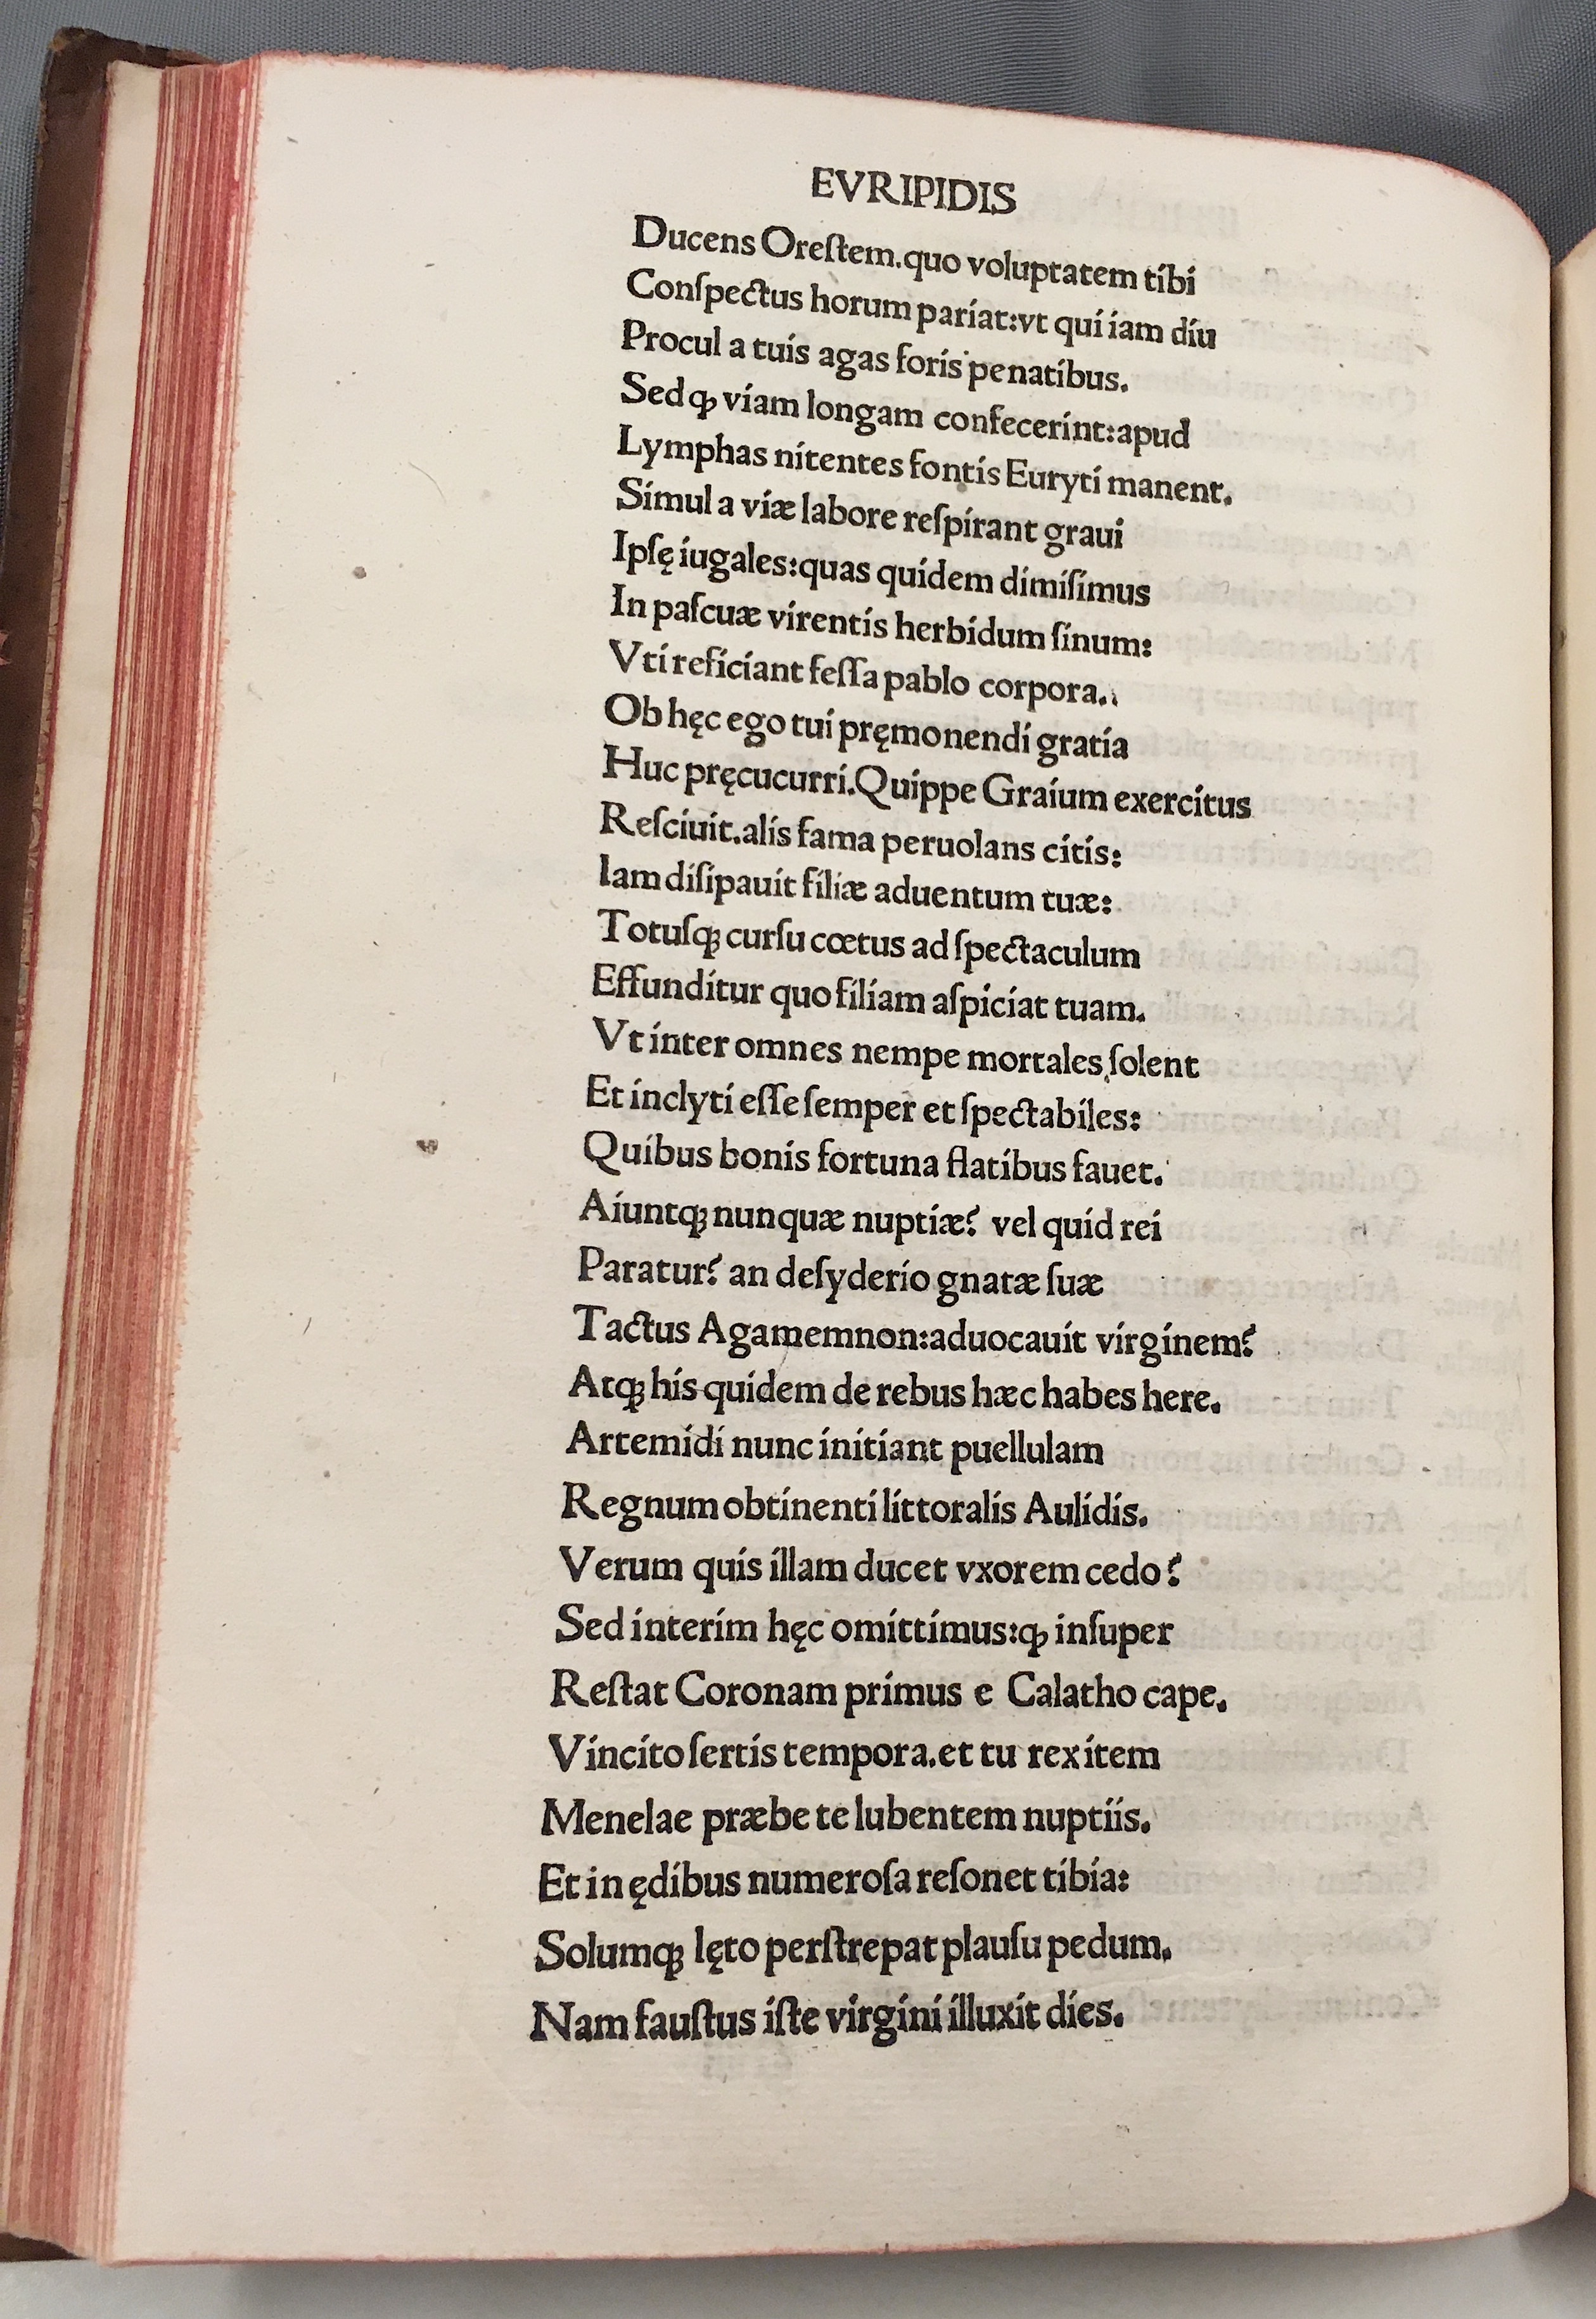 EVRIPIDIS
Ducens Oreſtem.quo voluptatem tibi
Conſpectus horum pariat:vt qui iam diu
Procul a tuis agas foris penatibus.
Sed ꝙ viam longam confecerint:apud
Lymphas nitentes fontis Euryti manent.
Simul a viæ labore reſpirant graui
Ipſę iugales:quas quidem dimiſimus
In paſcuæ virentis herbidum ſinum:
Vti reficiant feſſa pablo corpora.
Ob hęc ego tui pręmonendi gratia
Huc pręcucurri.Quippe Graium exercitus
Reſciuit.alis fama peruolans citis:
Iam diſipauit filiæ aduentum tuæ:
Totuſqꝫ curſu cœtus ad ſpectaculum
Effunditur quo filiam aſpiciat tuam.
Vt inter omnes nempe mortales ſolent
Et inclyti eſſe ſemper et ſpectabiles:
Quibus bonis fortuna flatibus fauet.
Aiuntqꝫ nunquæ nuptiæ? vel quid rei
Paratur? an deſyderio gnatæ ſuæ
Tactus Agamemnon:aduocauit virginem?
Atqꝫ his quidem de rebus hæc habes here.
Artemidi nunc initiant puellulam
Regnum obtinenti littoralis Aulidis.
Verum quis illam ducet vxorem cedo?
Sed interim hęc omittimus:ꝙ inſuper
Reſtat Coronam primus e Calatho cape.
Vincito ſertis tempora.et tu rex item
Menelae præbe te lubentem nuptiis.
Et in ędibus numeroſa reſonet tibia:
Solumqꝫ lęto perſtrepat plauſu pedum.
Nam fauſtus iſte virgini illuxit dies.